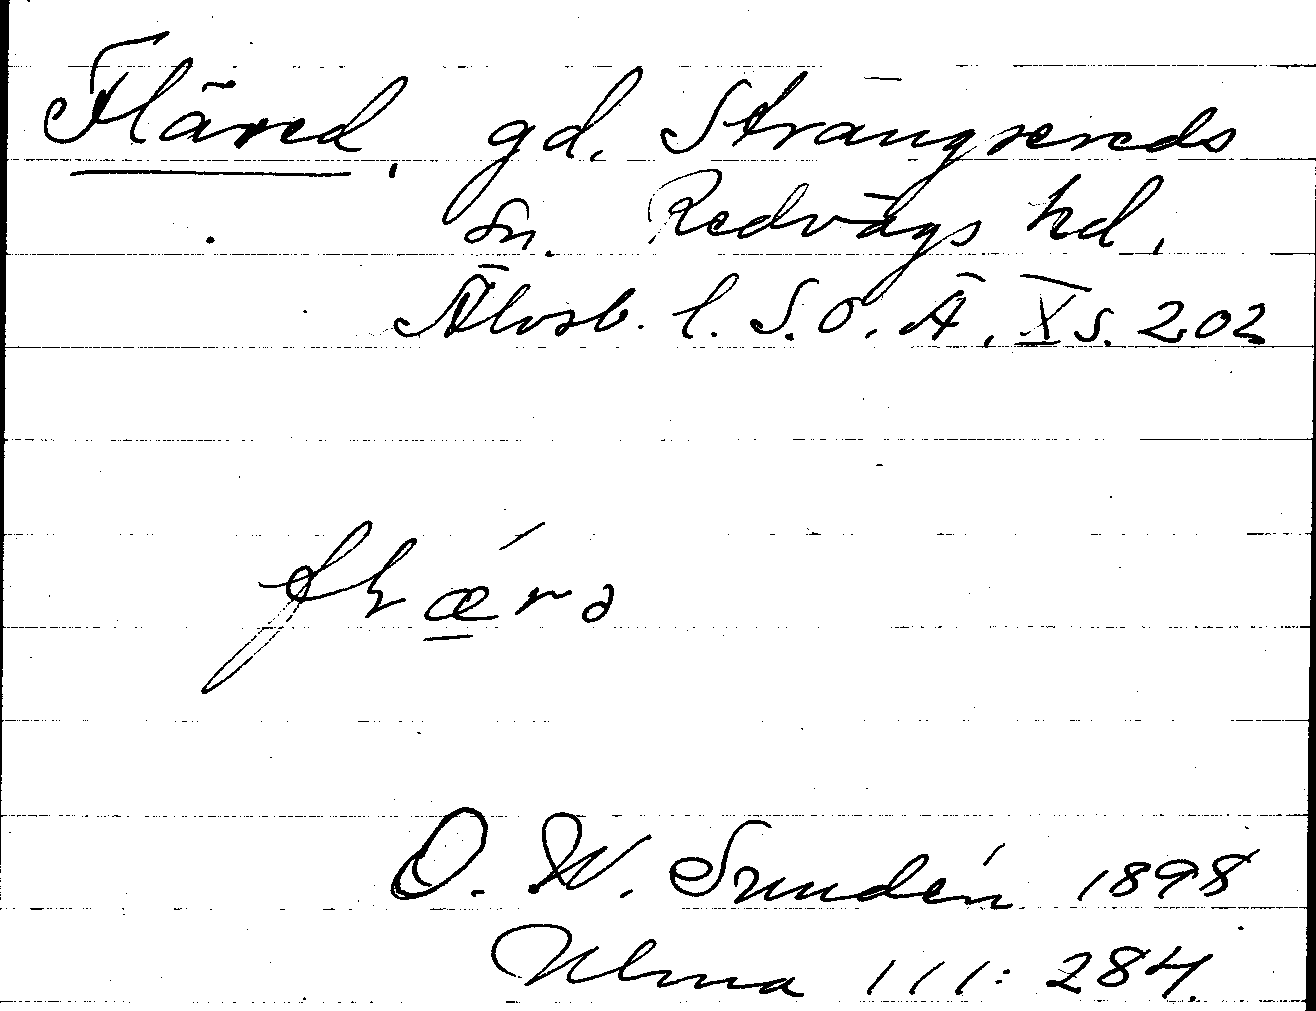 Fläred, gd. Strängsereds
sn. Redvägs hd,
Älvsb. l. S.O.Ä. X s. 202
flǽrə
O. W. Sundén 1898
Ulma 111:284.